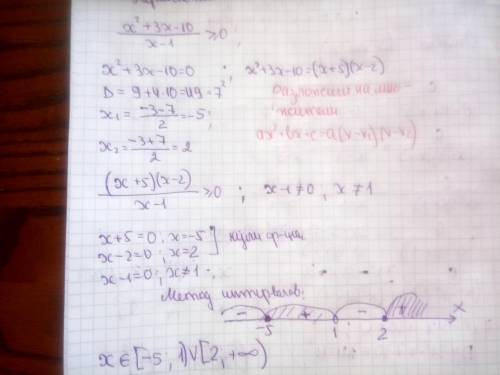 x²+3x-10 / x-1 ≥0
x²+3x-10=0 ; x²+3x-10=(x+5)(x-2)
D = 9+4·10=49=7²
разложили на мно-
жители
x₁ = -3-7 / 2 = -5 ;
ax²+bx-c=a(x-x₁)(x-x₂)
x₂ = -3+7 / 2 = 2
(x+5)(x-2) / x-1 ≥0 ; x-1≠0 , x≠1
x+5=0 ; x=-5
x-2=0 ; x=2 нули ф-ции
x-1=0 ; x≠1 ;
Метод интервалов:
- + - + x
-5 1 2
x∈[-5 ; 1)∨[2, +∞)